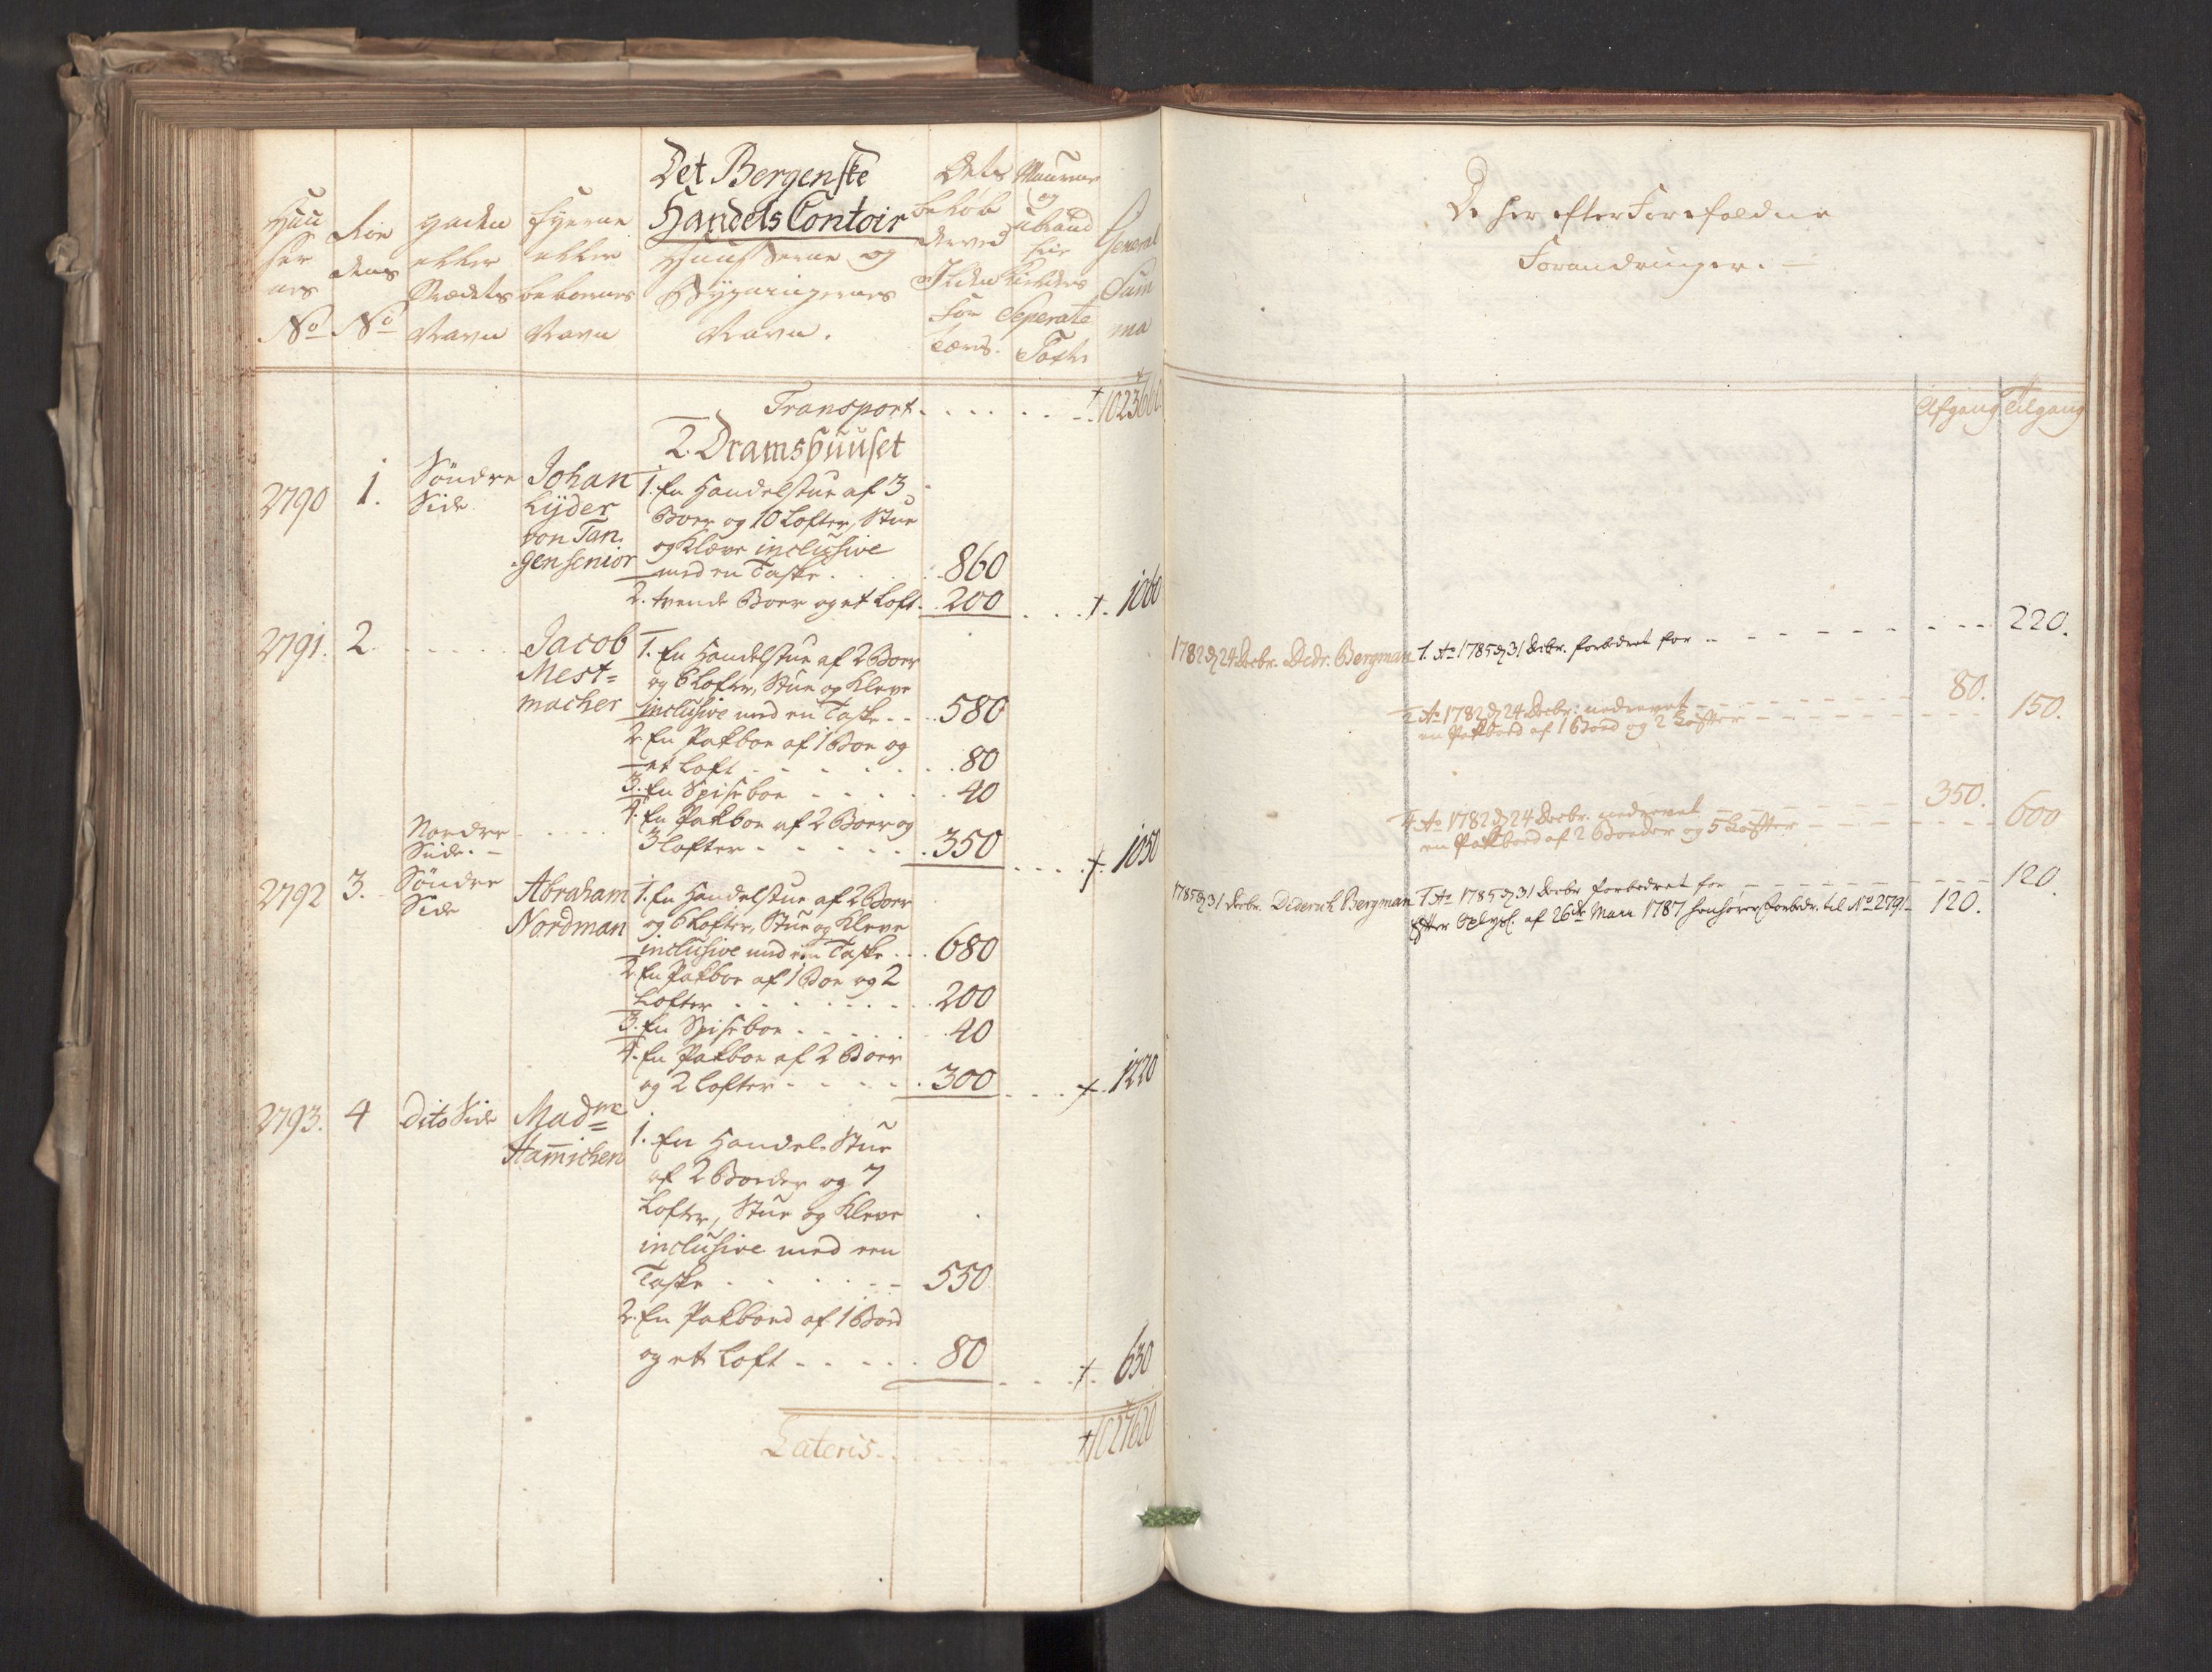 Det Bergenske
Handels Contoir
Huusernes No
Rodens No
Gadens eller Strædets Navn
Eyerne eller beboernes Navn
Huussenne og
Bygningernes
Navn.
General Summa
Transport . . . . . . 1023660
2. Dramshuuset
2790 1. Søndre Side Johan Lyder von Tangen senior
1. En Handelstue af 3
Boer og 10 Lofter, Stue
og Klæve inclusive
med en Taske . . 860
2. tvende Boer og et Loft. 200 . . . 1060
2791. 2. . . . . . Jacob Mest=macher
1. En Handelstue af 2 Boer
og 6 Lofter, Stue og Kleve
inclusive med en Taske . . 580
2. En Pakboe af 1 Boe og
et Loft . . . . . . 80
3. En Spiseboe . . . . . 40
Nordre Side. –
4. En Pakboe af 2 Boer og
3 Lofter . . . . . 350 . . . . 1050
2792 3. Søndre Side Abraham Nordman
1. En Handelstue af 2 Boer
og 6 Lofter, Stue og Kleve
inclusive med een Taske . . 680
2. En Pakboe af 1 Boe og 2
Lofter . . . . . . . 200
3. En Spiseboe . . . . . 40
4. En Pakboe af 2 Boer
og 2 Lofter . . . . . 300 . . . . 1220
2793. 4 Dito Side Madme Hamichen
1. En Handel-Stue
af 2 Boeder og 7
Lofter, Stue og Kleve
inclusive med een
Taske . . . . . . 550
2. En Pakboed af 1 Boed
og et Loft . . . . . 80 . . . . 630
Lateris . . . . . . . 1027620
De her efter Forefaldne
Forandringer. –
Afgang Tilgang
1782 d. 24 Decbr. Didr. Bergman 1. Ao 1785 d. 31 Decbr. forbedret for – – – – – – – – – 220.
2 Ao 1782 d. 24 Decbr. nedrevet – – – – – – – – 80.
en Pakboed af 1 Boed og 2 Lofter – – – – – – – – 150.
4 Ao 1782 d. 24 Decbr. nedrevet – – – – – – – – 350.
en Pakboed af 2 Boeder og 5 Lofter – – – – – – – 600
1785 d. 31 Decbr. Diderich Bergman 1 Ao 1785 d. 31 Decbr. forbedret for – – – – – – – – – 120.
Efter Oplysn. af 26de Mars 1787 henhører forbedr. til No 2791 – 120.